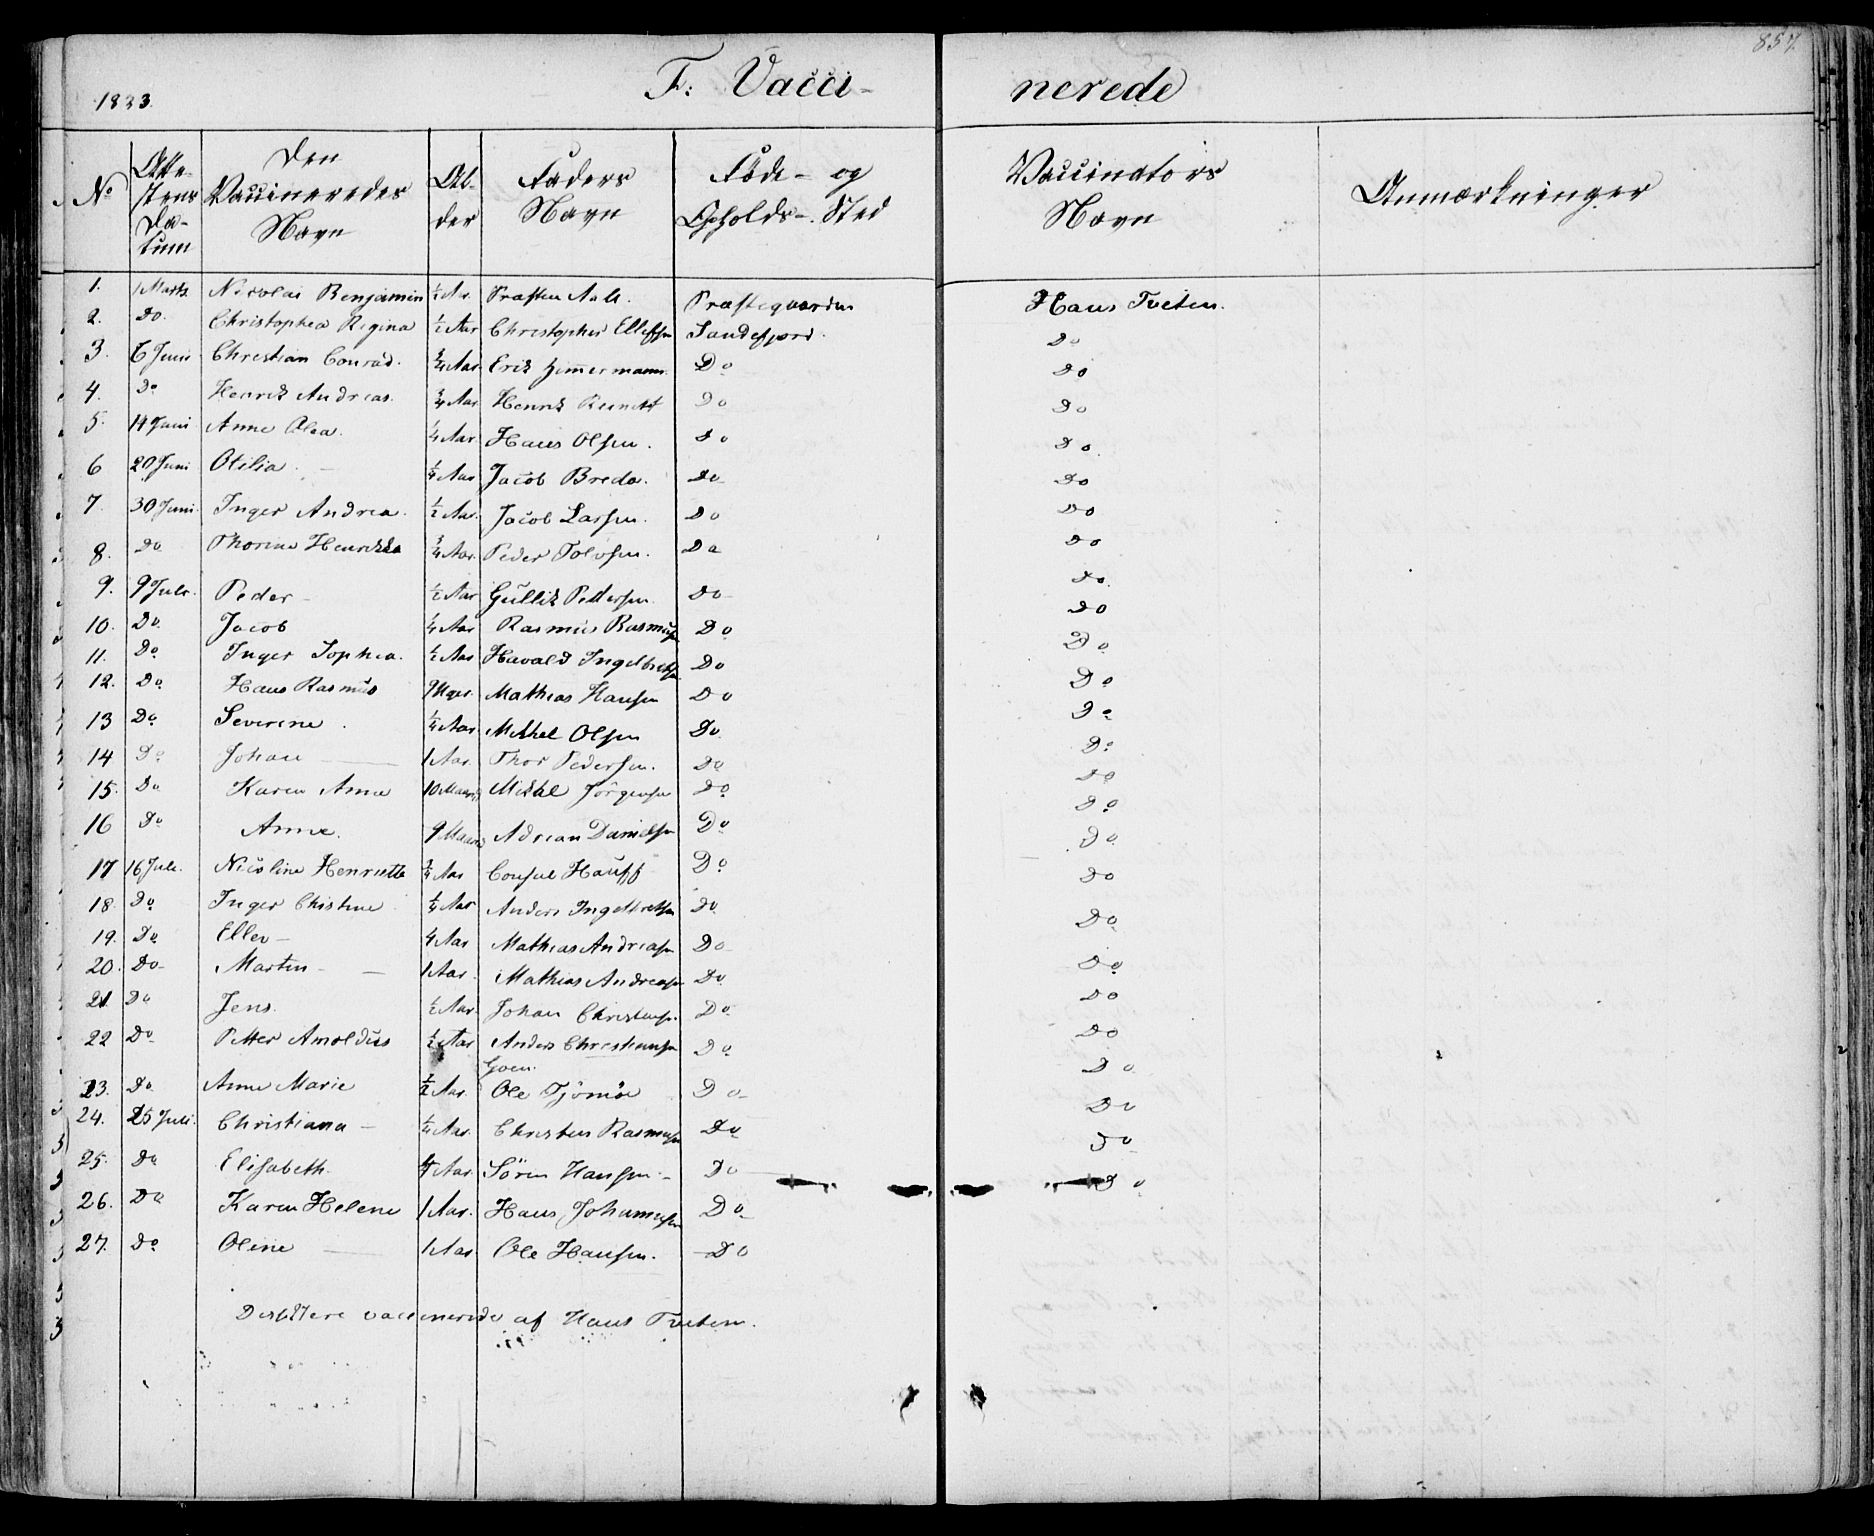 857.
1833.
F. Vacci- nerede
No | Atte-stens Da-tum | Den Vaccineredes Navn | Al-der | Faders Navn | Föde- og Opholds-Sted | Vaccinators Navn | Anmærkninger
1. | 1 Marts | Nicolai Benjamin | 1/2 Aar | Præsten Aale. | Præstegaarden | Hans Tveten.
2. | Do. | Christophea Regina | 1/2 Aar | Christopher Ellefsen | Sandefjord. | Do
3. | 6 Juni | Christian Conrad. | 3/4 Aar | Erik Zimmermann. | Do | Do
4. | Do | Henrik Andreas. | 3/4 Aar | Henrik | Do | Do
5. | 14 Juni | Anne Olea. | 1/4 Aar | Hans Olsen. | Do | Do
6 | 20 Juni | Otilia. | 1/4 Aar | Jacob Bredo. | Do | Do
7. | 30 Juni. | Inger Andrea. | 1/2 Aar. | Jacob Larsen. | Do | Do
8. | Do | Thorine Henrikka | 3/4 Aar. | Peder Tolvsen. | Do | Do
9. | 9 Juli. | Peder - | 1/2 Aar | Gullik Pettersen | Do | Do.
10. | Do. | Jacob | 1/4 Aar | Rasmus Rasmusen | Do | Do
11. | Do | Inger Sophea. | 1/2 Aar | Havald Ingelbretsen | Do | Do
12. | Do. | Hans Rasmus | 9 Uger. | Mathias Hansen | Do | Do
13 | Do | Severine. | 1/4 Aar | Mikkel Olsen | Do. | Do
14 | Do | Johan | 1 Aar. | Thor Pedersen. | Do | Do
15. | Do | Karen Anne | 10 Maaned | Mikkel Jörgensen | Do | Do
16 | Do | Anne. | 9 Maaned | Adrian Danielsen | Do | Do
17 | 16 Juli. | Nicoline Henriette | 3/4 Aar | Consul Hauff | Do | Do
18. | Do | Inger Christine | 1/4 Aar | Anders Ingelbretsen | Do | Do
19. | Do | Ellev - | 4 Aar | Mathias Andreasen | Do | Do
20. | Do | Martin - | 1 Aar. | Mathias Andreasen | Do | Do
21 | Do | Jens. | 1/2 Aar. | Johan Christensen. | Do | Do
22 | Do | Petter Arnoldus | 1/2 Aar | Anders Christiansen | Do | Do
23. | Do | Anne Marie | 1/2 Aar | Ole Tjömöe | Do | Do
24. | 25 Juli. | Christiana - | 1/4 Aar. | Christen Rasmusen | Do | Do
25. | Do | Elisabeth. | Aar. | Sören Hansen - | Do | Do
26. | Do | Karen Helene | 1 Aar. | Hans Johannesen | Do | Do
27. | Do | Oline | 1 Aar. | Ole Hansen. | Do
vaccinerede af Hans Tveten.